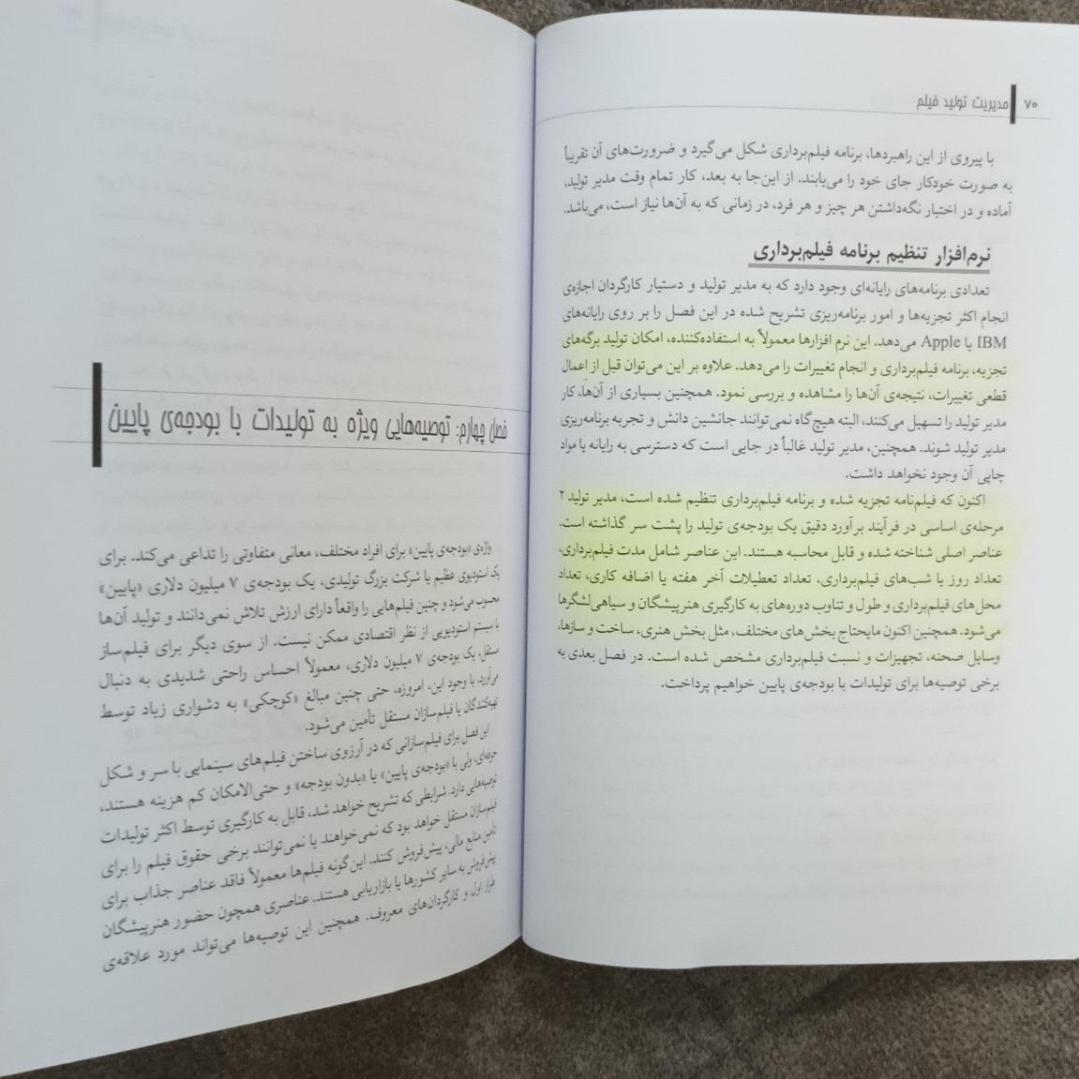 ۷۰ مدیریت تولید فیلم
با پیروی از این راهبردها، برنامه فیلم‌برداری شکل می‌گیرد و ضرورت‌های آن تقریباً
به صورت خودکار جای خود را می‌یابند. از این‌جا به بعد، کار تمام وقت مدیر تولید،
آماده و در اختیار نگه‌داشتن هر چیز و هر فرد، در زمانی که به آن‌ها نیاز است، می‌باشد.
نرم‌افزار تنظیم برنامه فیلم‌برداری
تعدادی برنامه‌های رایانه‌ای وجود دارد که به مدیر تولید و دستیار کارگردان اجازه‌ی
انجام اکثر تجزیه‌ها و امور برنامه‌ریزی تشریح شده در این فصل را بر روی رایانه‌های
IBM یا Apple می‌دهد. این نرم افزارها معمولاً به استفاده‌کننده، امکان تولید برگه‌های
تجزیه، برنامه فیلم‌برداری و انجام تغییرات را می‌دهد. علاوه بر این می‌توان قبل از اعمال
قطعی تغییرات، نتیجه‌ی آن‌ها را مشاهده و بررسی نمود. همچنین بسیاری از آن‌ها، کار
مدیر تولید را تسهیل می‌کنند، البته هیچ‌گاه نمی‌توانند جانشین دانش و تجربه برنامه‌ریزی
مدیر تولید شوند. همچنین، مدیر تولید غالباً در جایی است که دسترسی به رایانه یا مواد
چاپی آن وجود نخواهد داشت.
اکنون که فیلم‌نامه تجزیه شده و برنامه فیلم‌برداری تنظیم شده است، مدیر تولید ۲
مرحله‌ی اساسی در فرآیند برآورد دقیق یک بودجه‌ی تولید را پشت سر گذاشته است.
عناصر اصلی شناخته شده و قابل محاسبه هستند. این عناصر شامل مدت فیلم‌برداری،
تعداد روز یا شب‌های فیلم‌برداری، تعداد تعطیلات آخر هفته یا اضافه کاری، تعداد
محل‌های فیلم‌برداری و طول و تناوب دوره‌های به کارگیری هنرپیشگان و سیاهی‌لشگرها
می‌شود. همچنین اکنون مایحتاج بخش‌های مختلف، مثل بخش هنری، ساخت و سازها،
وسایل صحنه، تجهیزات و نسبت فیلم‌برداری مشخص شده است. در فصل بعدی به
برخی توصیه‌ها برای تولیدات با بودجه‌ی پایین خواهیم پرداخت.
فصل چهارم: توصیه‌هایی ویژه به تولیدات با بودجه‌ی پایین
واژه‌ی «بودجه‌ی پایین» برای افراد مختلف، معانی متفاوتی را تداعی می‌کند. برای
یک استودیوی عظیم یا شرکت بزرگ تولیدی، یک بودجه‌ی ۷ میلیون دلاری «پایین»
محسوب می‌شود و چنین فیلم‌هایی را واقعاً دارای ارزش تلاش نمی‌دانند و تولید آن‌ها
با سیستم استودیویی از نظر اقتصادی ممکن نیست. از سوی دیگر برای فیلم‌ساز
مستقل، یک بودجه‌ی ۷ میلیون دلاری، معمولاً احساس راحتی شدیدی به دنبال
می‌آورد. با وجود این، امروزه، حتی چنین مبالغ «کوچکی» به دشواری زیاد توسط
تهیه‌کنندگان یا فیلم‌سازان مستقل تأمین می‌شود.
این فصل برای فیلم‌سازانی که در آرزوی ساختن فیلم‌های سینمایی با سر و شکل
حرفه‌ای، ولی با «بودجه‌ی پایین» یا «بدون بودجه» و حتی‌الامکان کم هزینه هستند،
توصیه‌هایی دارد. شرایطی که تشریح خواهد شد، قابل به کارگیری توسط اکثر تولیدات
فیلم‌سازان مستقل خواهد بود که نمی‌خواهند یا نمی‌توانند برخی حقوق فیلم را برای
تأمین منابع مالی، پیش‌فروش کنند. این‌گونه فیلم‌ها معمولاً فاقد عناصر جذاب برای
پیش‌فروش به سایر کشورها یا بازاریابی هستند. عناصری همچون حضور هنرپیشگان
طراز اول و کارگردان‌های معروف. همچنین این توصیه‌ها می‌تواند مورد علاقه‌ی